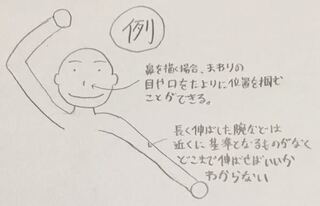 例
鼻を描く場合、まわりの
目や口をたよりに位置を掴む
ことができる。
長く伸ばした腕などは
近くに基準となるものがなく
どこまで伸ばせばいいか
わからない